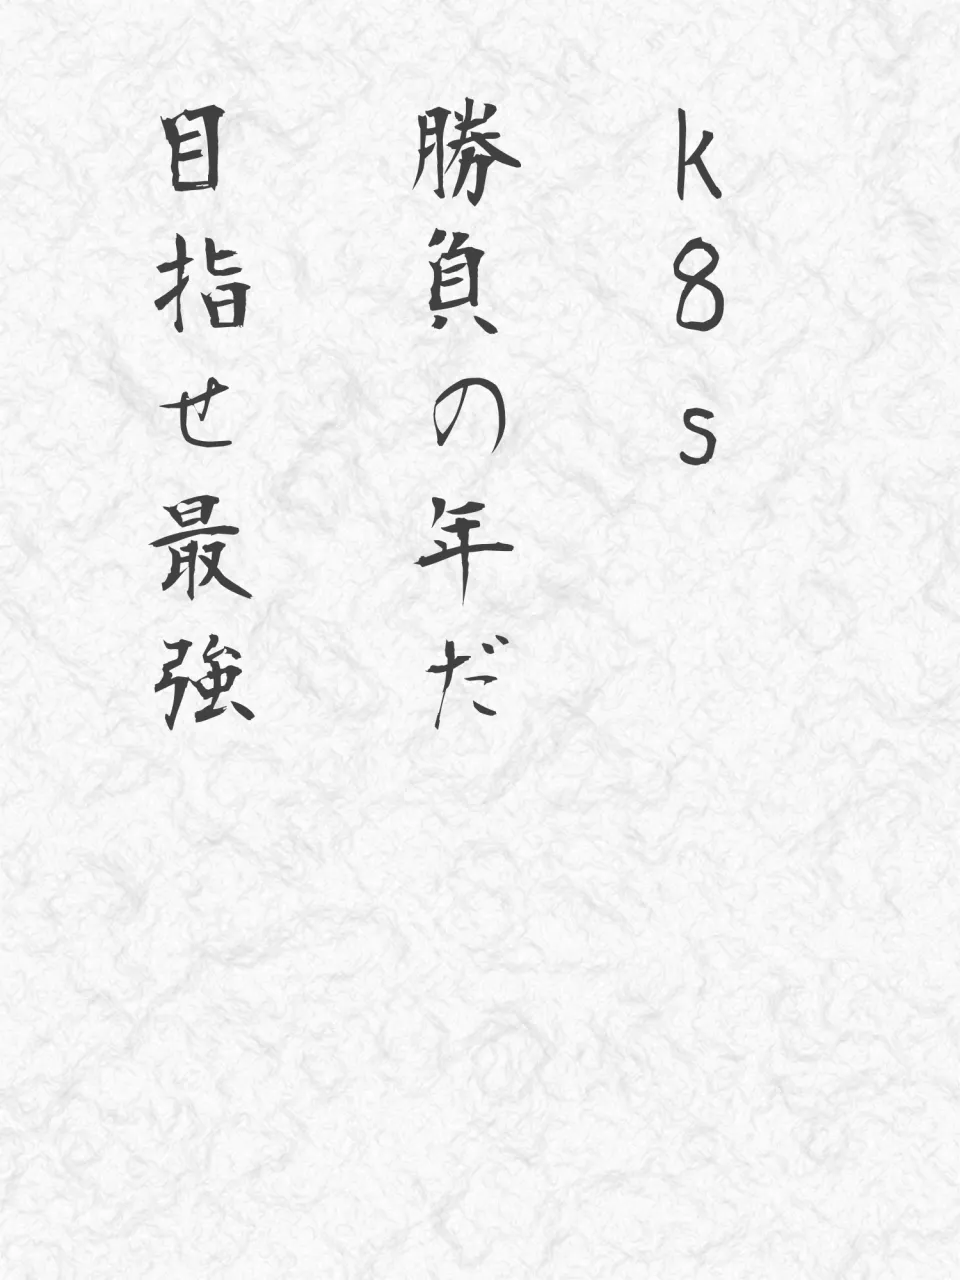 k8s
勝負の年だ
目指せ最強